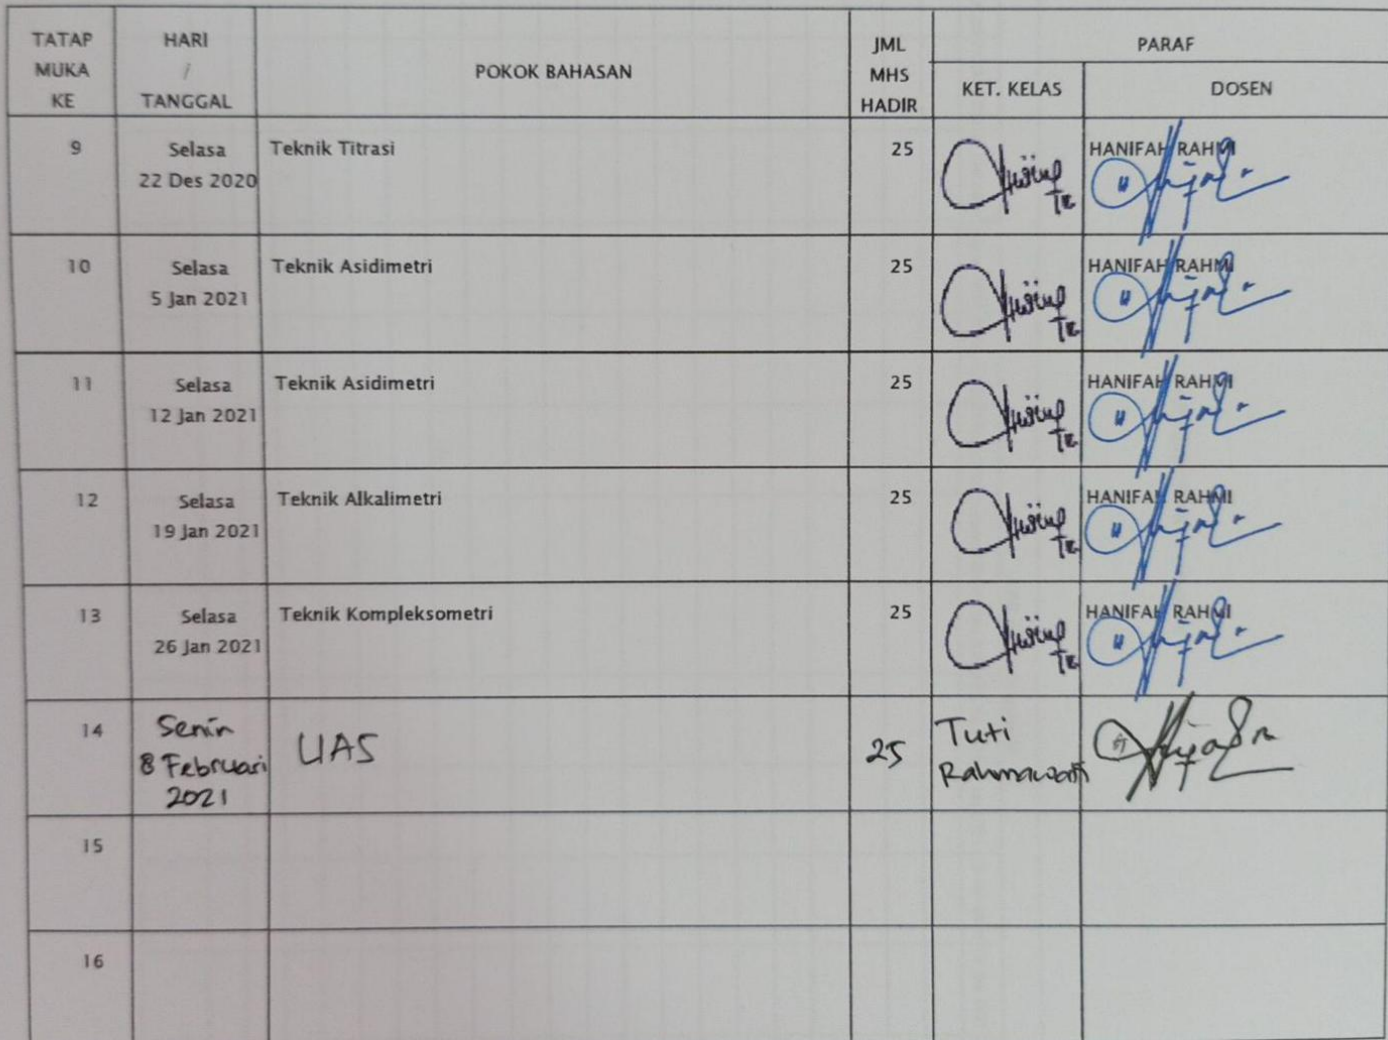 TATAP MUKA KE
HARI / TANGGAL
POKOK BAHASAN
JML MHS HADIR
PARAF
KET. KELAS
DOSEN
9
Selasa
22 Des 2020
Teknik Titrasi
25
HANIFAH RAHMI
10
Selasa
5 Jan 2021
Teknik Asidimetri
25
HANIFAH RAHMI
11
Selasa
12 Jan 2021
Teknik Asidimetri
25
HANIFAH RAHMI
12
Selasa
19 Jan 2021
Teknik Alkalimetri
25
HANIFAH RAHMI
13
Selasa
26 Jan 2021
Teknik Kompleksometri
25
HANIFAH RAHMI
14
Senin
8 Februari
2021
UAS
25
Tuti
Rahmawati
15
16